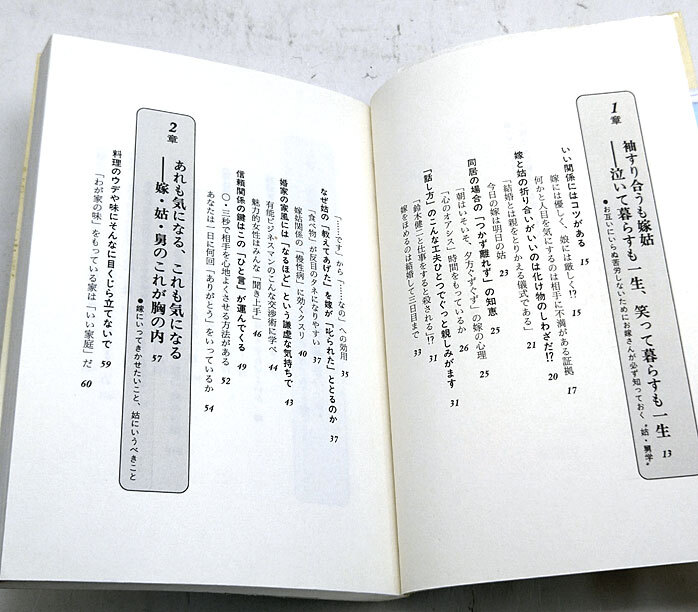 1章
袖すり合うも嫁姑
――泣いて暮らすも一生、笑って暮らすも一生 13
●お互いにいらぬ苦労しないためにお嫁さんが必ず知っておく“姑・舅学”
いい関係にはコツがある 15
嫁には優しく、娘には厳しく!? 15
何かと人目を気にするのは相手に不満がある証拠 17
嫁と姑の折り合いがいいのは化け物のしわざだ!? 20
「結婚とは親をとりかえる儀式である」 21
今日の嫁は明日の姑 23
同居の場合の「つかず離れず」の知恵 25
「朝はいそいそ、夕方ぐずぐず」の嫁の心理 25
「心のオアシス」時間をもっているか 26
「話し方」のこんな工夫ひとつでぐっと親しみがます 31
「鈴木健二と仕事をすると殺される」!? 31
嫁をほめるのは結婚して三日目まで 33
「……です」から「……なの」への効用 35
なぜ姑の「教えてあげた」を嫁が「叱られた」ととるのか 37
「食べ物」が反目のタネになりやすい 37
嫁姑関係の「慢性病」に効くクスリ 40
婚家の家風には「なるほど」という謙虚な気持ちで 43
有能ビジネスマンのこんな交渉術に学べ 44
魅力的女性はみんな「聞き上手」 46
信頼関係の鍵はこの「ひと言」が運んでくる 49
〇・三秒で相手を心地よくさせる方法がある 52
あなたは一日に何回「ありがとう」をいっているか 54
2章
あれも気になる、これも気になる
――嫁・姑・舅のこれが胸の内 57
●嫁にいってきかせたいこと、姑にいうべきこと
料理のウデや味にそんなに目くじら立てないで 59
「わが家の味」をもっている家は「いい家庭」だ 60